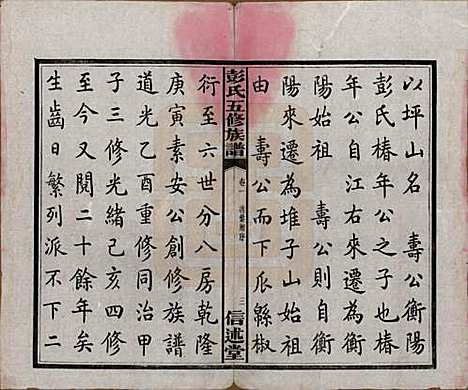 以坪山名　壽公衡陽
彭氏椿年公之子也椿
年公自江右來遷為衡
陽始祖　壽公則自衡
陽來遷為堆子山始祖
由　壽公而下瓜緜椒
彭氏五修族譜　卷一　三　信述堂
衍至六世分八房乾隆
庚寅素安公創修族譜
道光乙酉重修同治甲
子三修光緒己亥四修
至今又閱二十餘年矣
生齒日繁列派不下二